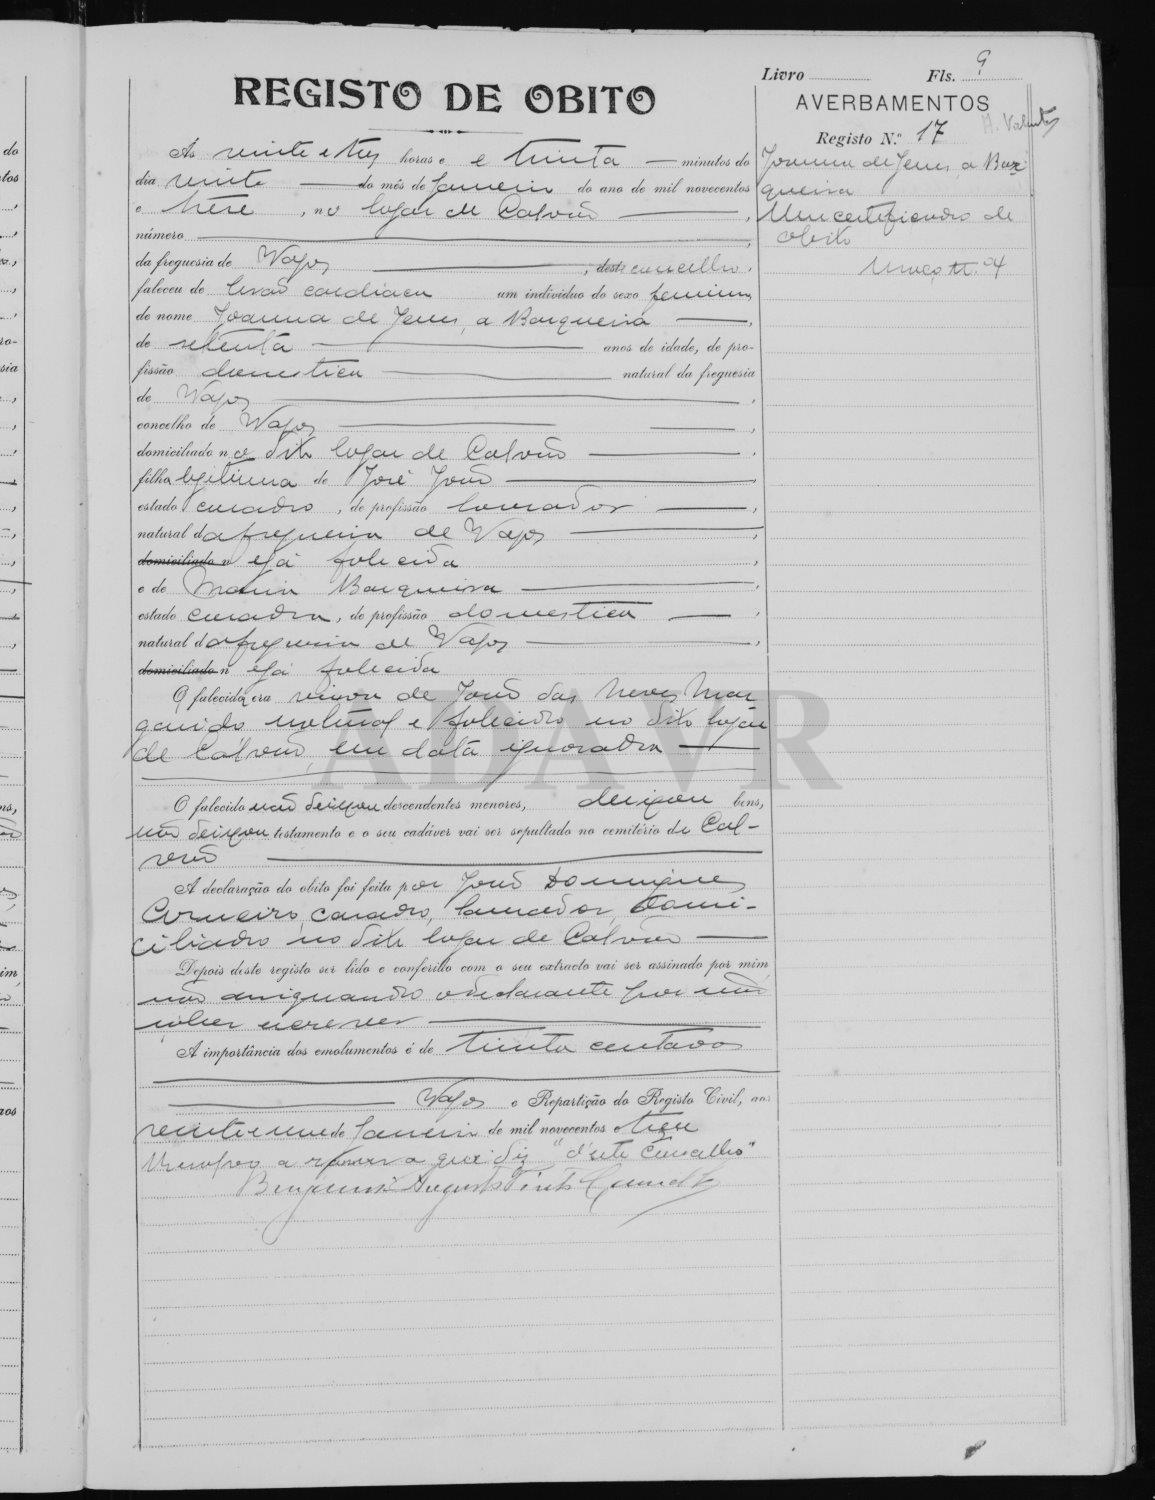 Livro Fls. 9
REGISTO DE OBITO
AVERBAMENTOS
Registo N.º 17
Joanna de Jesus, a Barqueira
Um certificado de
obito
Março
As vinte e tres horas e e trinta minutos do
dia vinte do mês de Janeiro do ano de mil novecentos
e treze, no logar de Calvão,
número
da freguesia de Vagos, deste concelho,
faleceu de lesão cardiaca um individuo do sexo feminino
de nome Joanna de Jesus, a Barqueira,
de setenta anos de idade, de pro-
fissão domestica natural da freguesia
de Vagos,
concelho de Vagos,
domiciliado no dito logar de Calvão,
filha legitima de José João,
estado casado, de profissão lavrador,
natural da freguesia de Vagos,
domiciliado n e já falecido
e de Maria Barqueira,
estado casada, de profissão domestica,
natural da freguesia de Vagos,
domiciliado n e já falecida
O falecida era viuva de João das Neves Mar
garido natural e falecido no dito logar
de Calvão, em data ignorada
O falecido não deixou descendentes menores, deixou bens,
não deixou testamento e o seu cadáver vai ser sepultado no cemitério de Cal-
vão
A declaração do obito foi feita por João Domingues
Carneiro, casado, lavrador, domi-
ciliado no dito logar de Calvão
Depois deste registo ser lido e conferido com o seu extracto vai ser assinado por mim
não assignando o declarante por não
saber escrever
A importância dos emolumentos é de trinta centavos
Vagos e Repartição do Registo Civil, aos
vinte e um de Janeiro de mil novecentos e treze
Resalvo a rasura que diz "d'este Concelho"
Benjamim Augusto
ADAVR